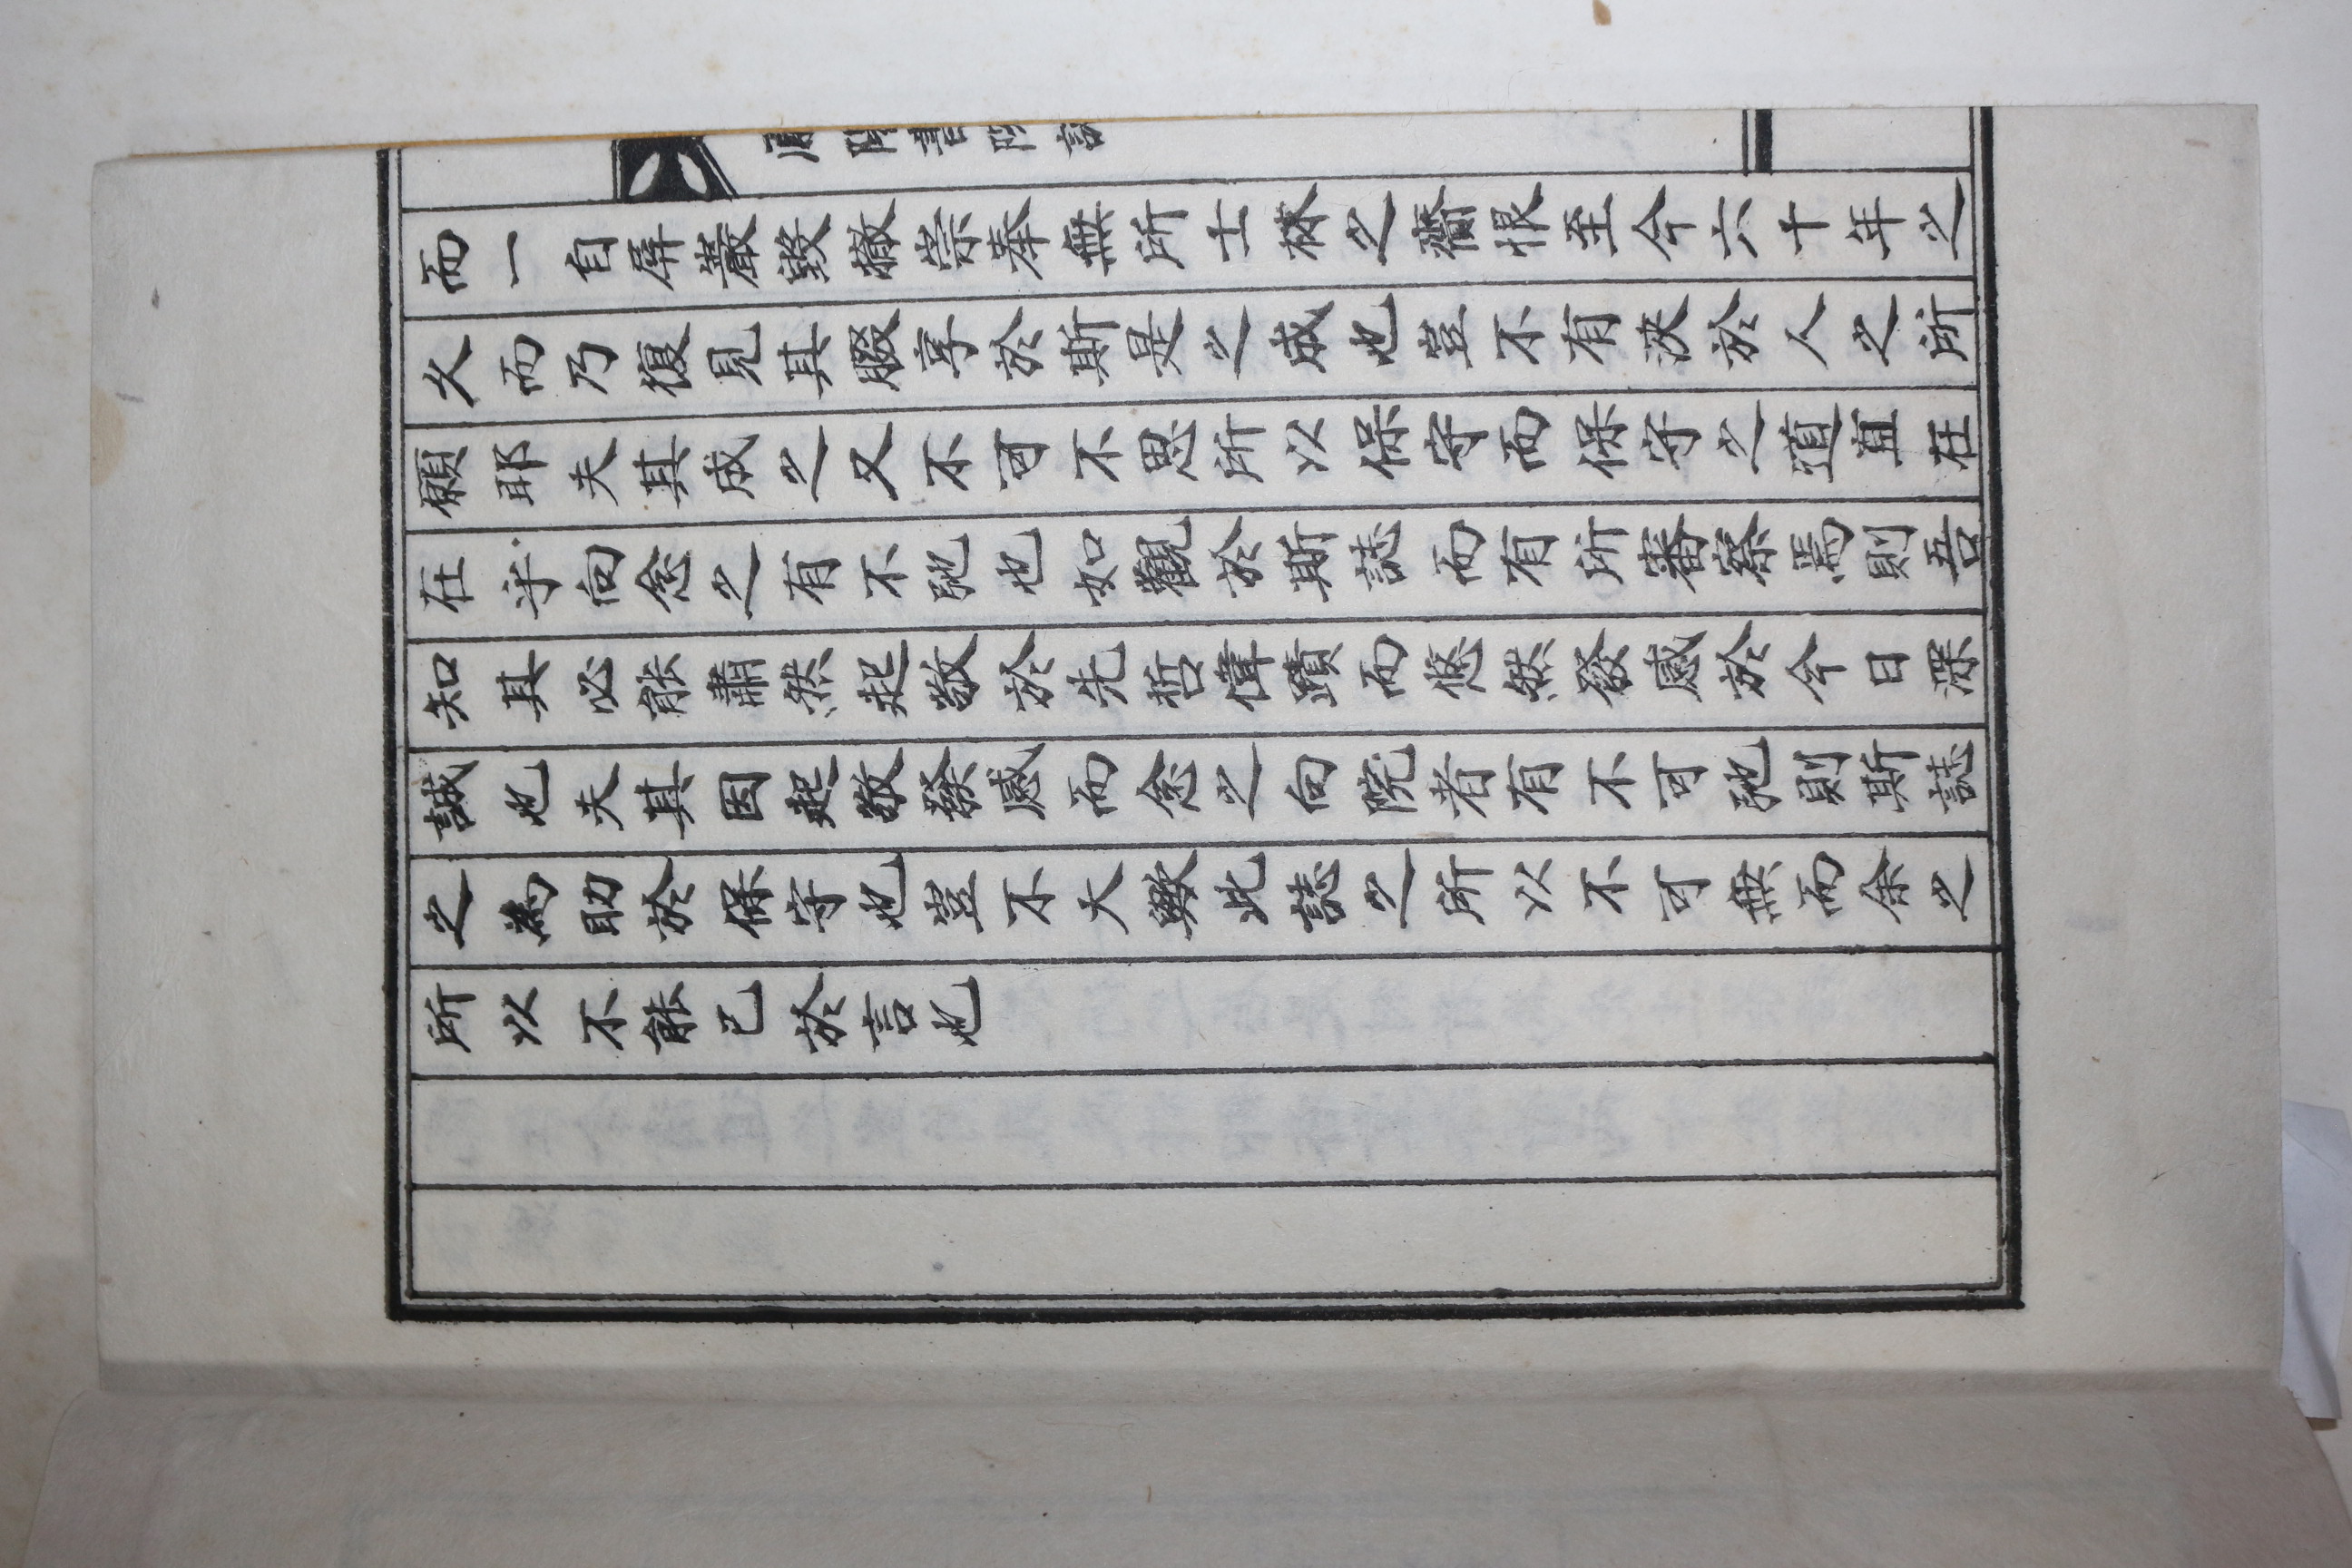 而一自屛巖毀撤崇奉無所士林之齎恨至今六十年之
久而乃復見其腏享於斯是之成也豈不有浹於人之所
願耶夫其成之又不可不思所以保守而保守之道直在
在乎向念之有不弛也如觀於斯誌而有所審察焉則吾
知其必能肅然起敬於先哲偉蹟而悠然發感於今日深
誠也夫其因起敬發感而念之向院者有不可弛則斯誌
之爲助於保守也豈不大歟此誌之所以不可無而余之
所以不能已於言也